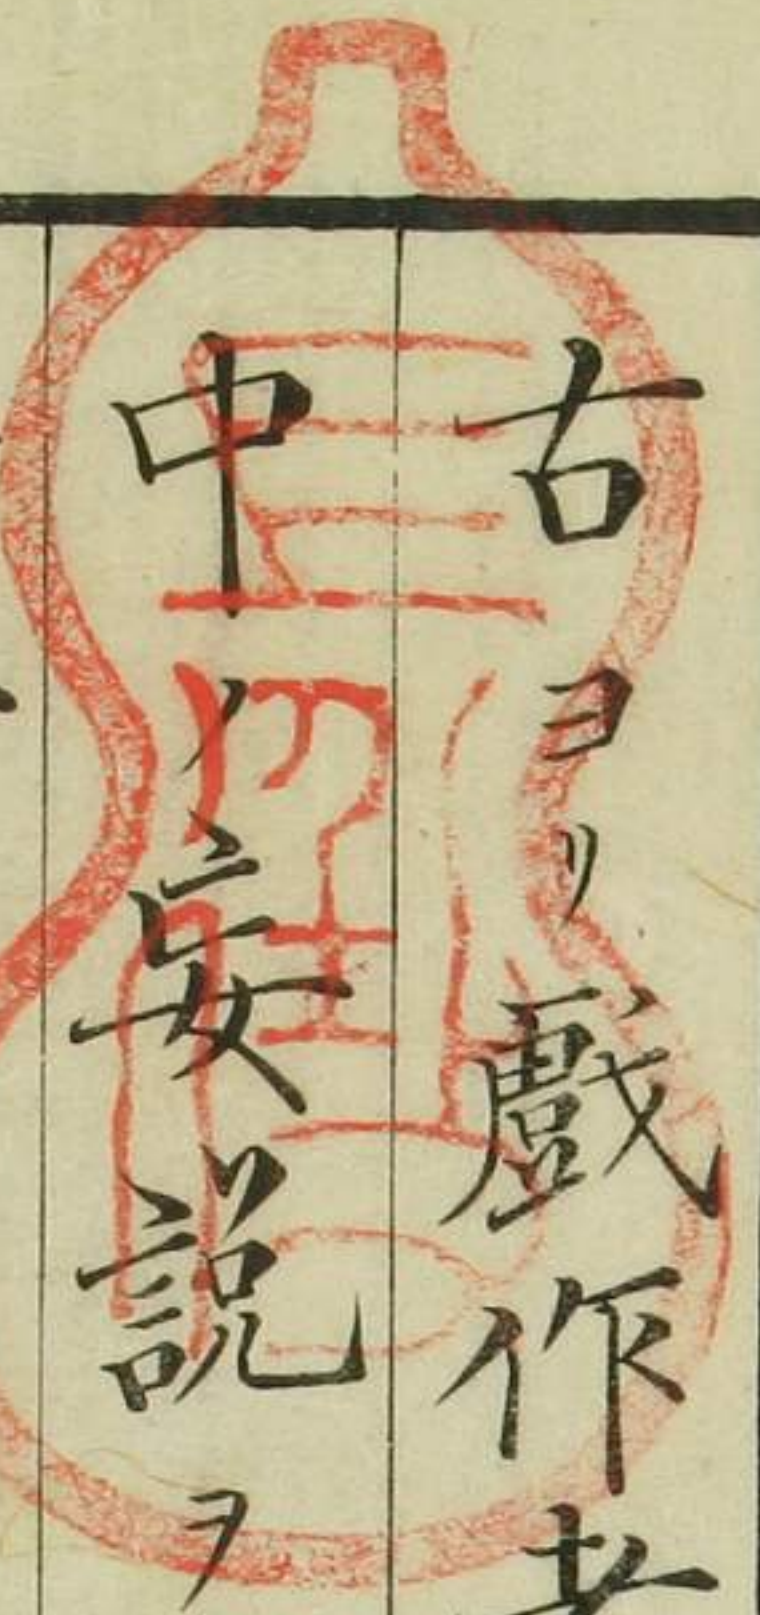 古ヨリ戯作者
中ノ妄説ヲ